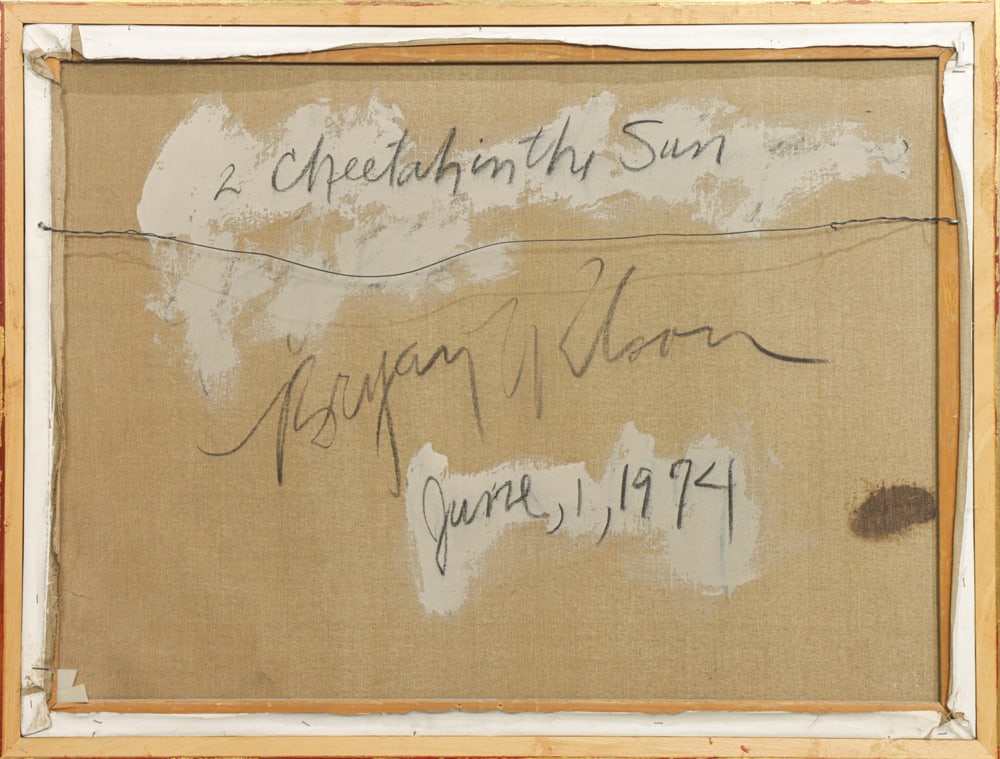 2 Cheetah in the Sun
Bryan Wilson
June, 1, 1974